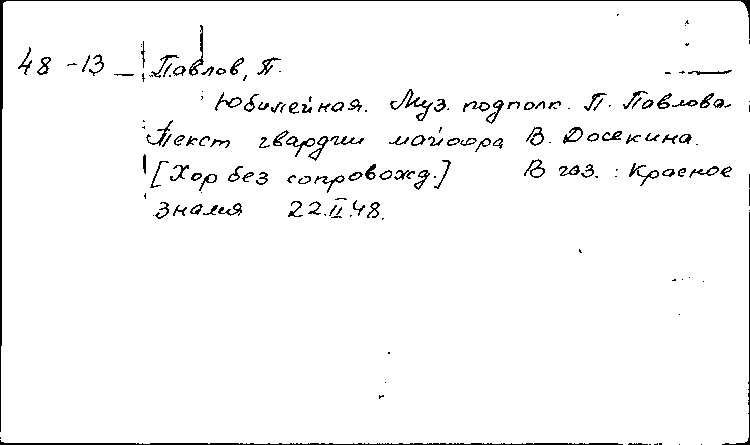 48-13 Павлов, П.
Юбилейная. Муз. подполк. П. Павлова
Текст гвардии майора В. Досекина.
[Хор без сопровожд.] В газ.: Красное
знамя 22.II.48.